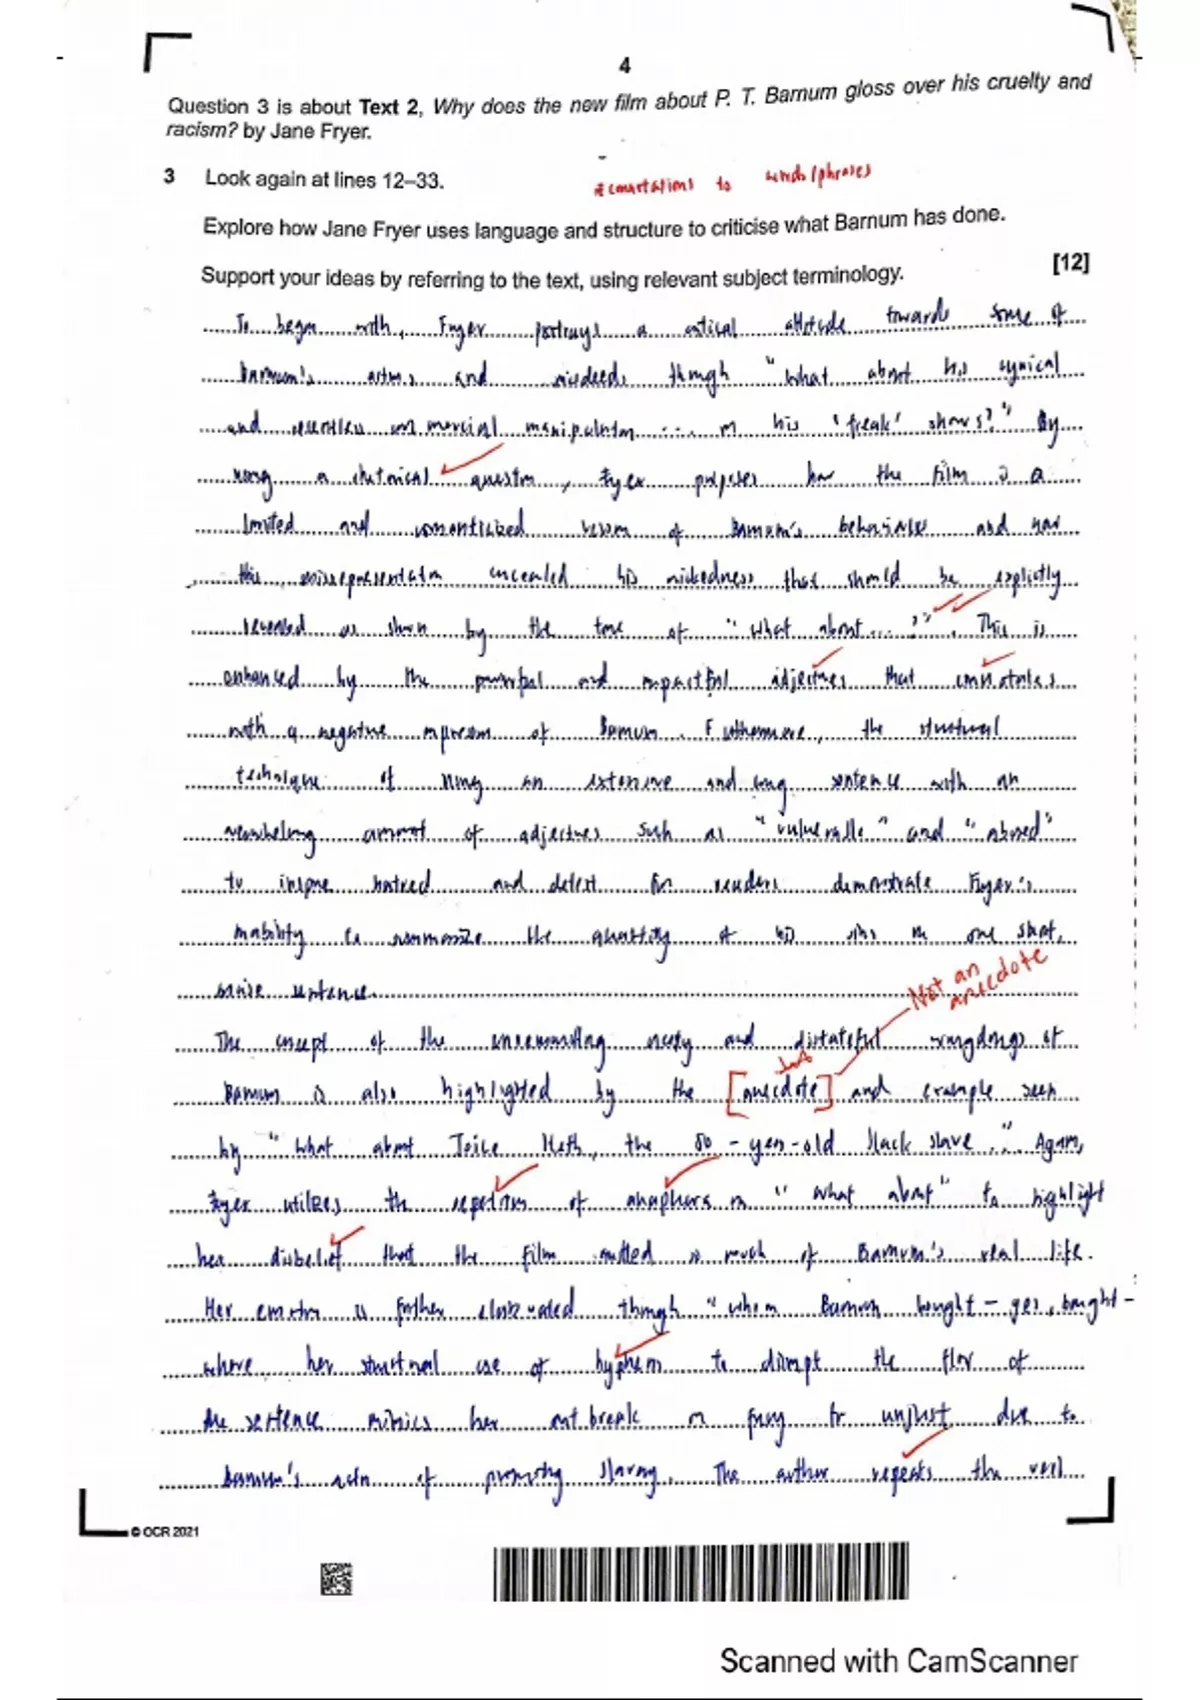 4
Question 3 is about Text 2, Why does the new film about P. T. Barnum gloss over his cruelty and
racism? by Jane Fryer.
3 Look again at lines 12–33.
connotations to words/phrases
Explore how Jane Fryer uses language and structure to criticise what Barnum has done.
Support your ideas by referring to the text, using relevant subject terminology. [12]
To begin with, Fryer portrays a critical attitude towards some of
Barnum's actions and misdeeds though "what about his cynical
and relentless commercial manipulation ... in his 'freak' shows?" By
using a rhetorical question, Fryer proposes how the film is a
limited and romanticized version of Barnum's behaviours and how
this misrepresentation concealed his wickedness that should be explicitly
revealed as shown by the tone of "what about...?". This is
enhanced by the powerful and impactful adjectives that connotates
with a negative impression of Barnum. Furthermore, the structural
technique of using an extensive and long sentence with an
overwhelming amount of adjectives such as "vulnerable" and "abused"
to inspire hatred and detest for readers demonstrate Fryer's
inability to summarize the quantity of his sins in one short,
concise sentence.
Not an
anecdote
The concept of the nasty and distasteful wrongdoings of
Barnum is also highlighted by the [anecdote] and example seen
by "what about Joice Heth, the 80-year-old black slave." Again,
Fryer utilizes the repetition of anaphora in "what about" to highlight
her disbelief that the film omitted so much of Barnum's real life.
Her emotion is further though "whom Barnum bought – yes, bought –
where her structural use of hyphen to disrupt the flow of
the sentence mimics her outbreak in fury for unjust due to
Barnum's action of promoting slavery. The author repeats the verb
© OCR 2021
Scanned with CamScanner